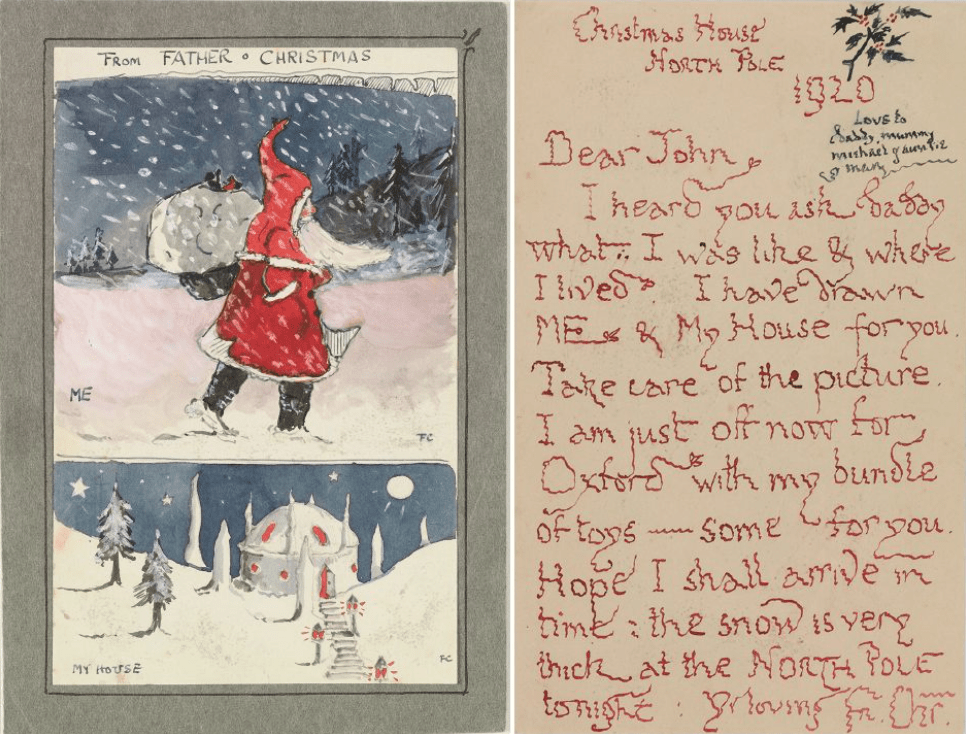 FROM FATHER · CHRISTMAS
ME
FC
MY HOUSE
FC
Christmas House
NORTH POLE
1920
Love to
daddy, mummy
michael & auntie
mary
Dear John,
I heard you ask daddy
what I was like & where
I lived. I have drawn
ME & My House for you.
Take care of the picture.
I am just off now for
Oxford with my bundle
of toys — some for you.
Hope I shall arrive in
time: the snow is very
thick at the NORTH POLE
tonight: Yr loving Fr. Chr.